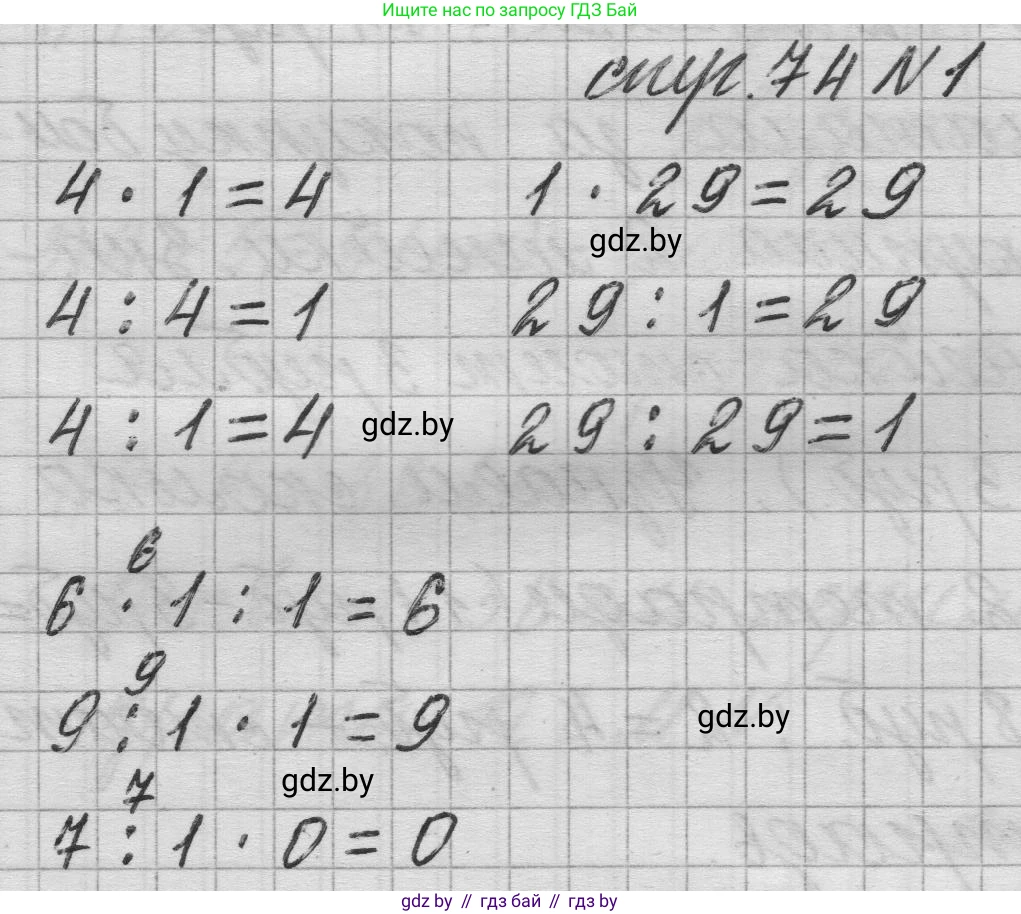 Ищите нас по запросу ГДЗ Бай
стр. 74 N 1
4 · 1 = 4 1 · 29 = 29
gdz.by
4 : 4 = 1 29 : 1 = 29
4 : 1 = 4 gdz.by 29 : 29 = 1
6
6 · 1 : 1 = 6
9
9 : 1 · 1 = 9 gdz.by
7 gdz.by
7 : 1 · 0 = 0
gdz by // гдз бай // гдз by